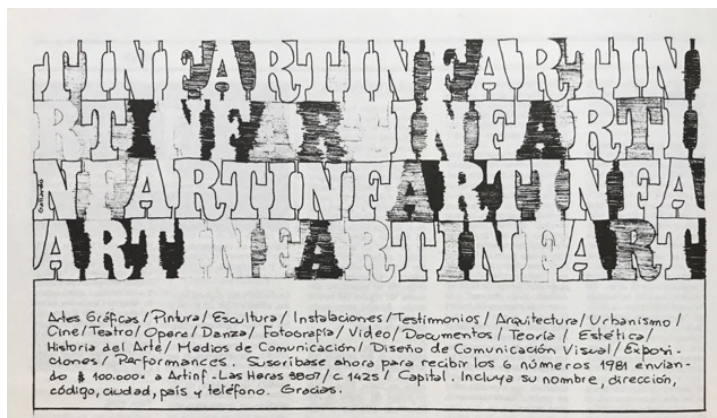 TINFARTINFARTIN
RTINFARTINFARTI
NFARTINFARTINFA
ARTINFARTINFART
Artes Gráficas / Pintura / Escultura / Instalaciones / Testimonios / Arquitectura / Urbanismo /
Cine / Teatro / Opera / Danza / Fotografía / Video / Documentos / Teoría / Estética /
Historia del Arte / Medios de Comunicación / Diseño de Comunicación Visual / Exposi-
ciones / Performances. Suscríbase ahora para recibir los 6 números 1981 envian-
do $ 100.000.- a Artinf - Las Heras 3807 / c 1425 / Capital. Incluya su nombre, dirección,
código, ciudad, país y teléfono. Gracias.